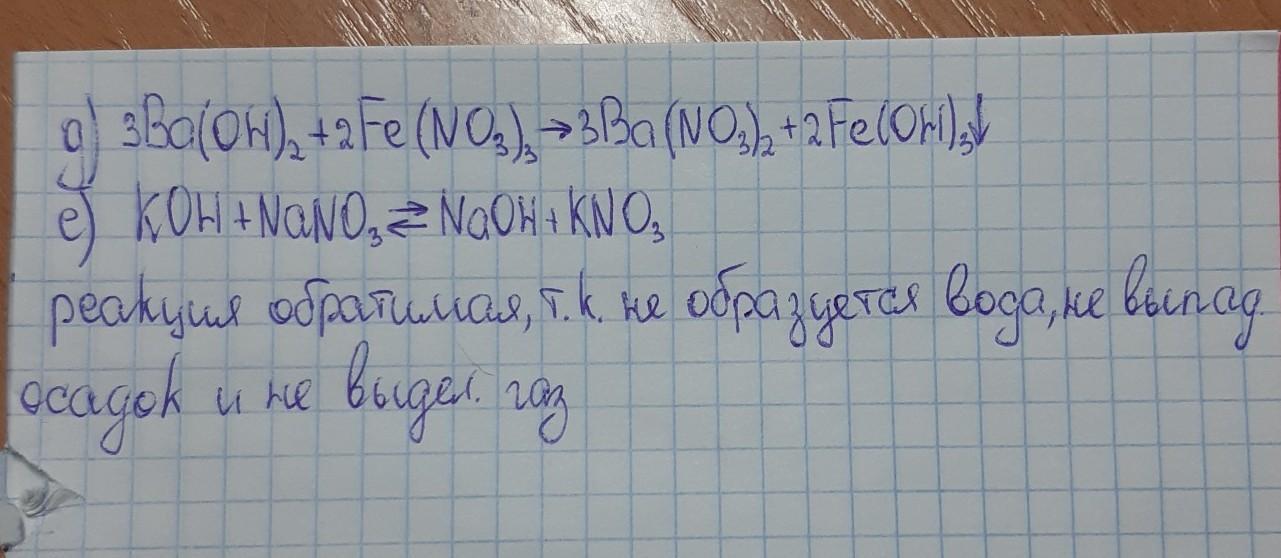 д) 3Ba(OH)₂+2Fe(NO₃)₃→3Ba(NO₃)₂+2Fe(OH)₃↓
е) KOH+NaNO₃⇄NaOH+KNO₃
реакция обратимая, т.к. не образуется вода, не выпад.
осадок и не выдел. газ